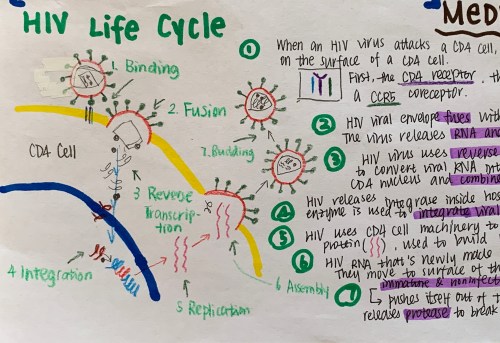 HIV Life Cycle
1. Binding
2. Fusion
7. Budding
CD4 Cell
3 Reverse
Transcrip-
tion
4 Integration
5 Replication
6 Assembly
MED
1 When an HIV virus attacks a CD4 cell,
on the surface of a CD4 cell.
First, the CD4 receptor,
a CCR5 coreceptor.
2 HIV viral envelope fuses with
The virus releases RNA an
3 HIV virus uses reverse
to convert viral RNA int
CD4 nucleus and combine
4 HIV releases integrase inside hos
enzyme is used to integrate viral
5 HIV uses CD4 machinery to
protein ( ), used to build
6 HIV RNA that's newly made
They move to surface of th
immature & noninfect
7 pushes itself out of t
releases protease to break